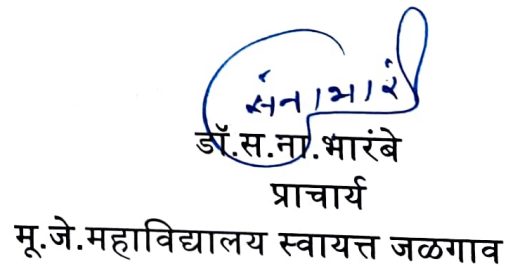 डॉ.स.ना.भारंबे
प्राचार्य
मू.जे.महाविद्यालय स्वायत्त जळगाव